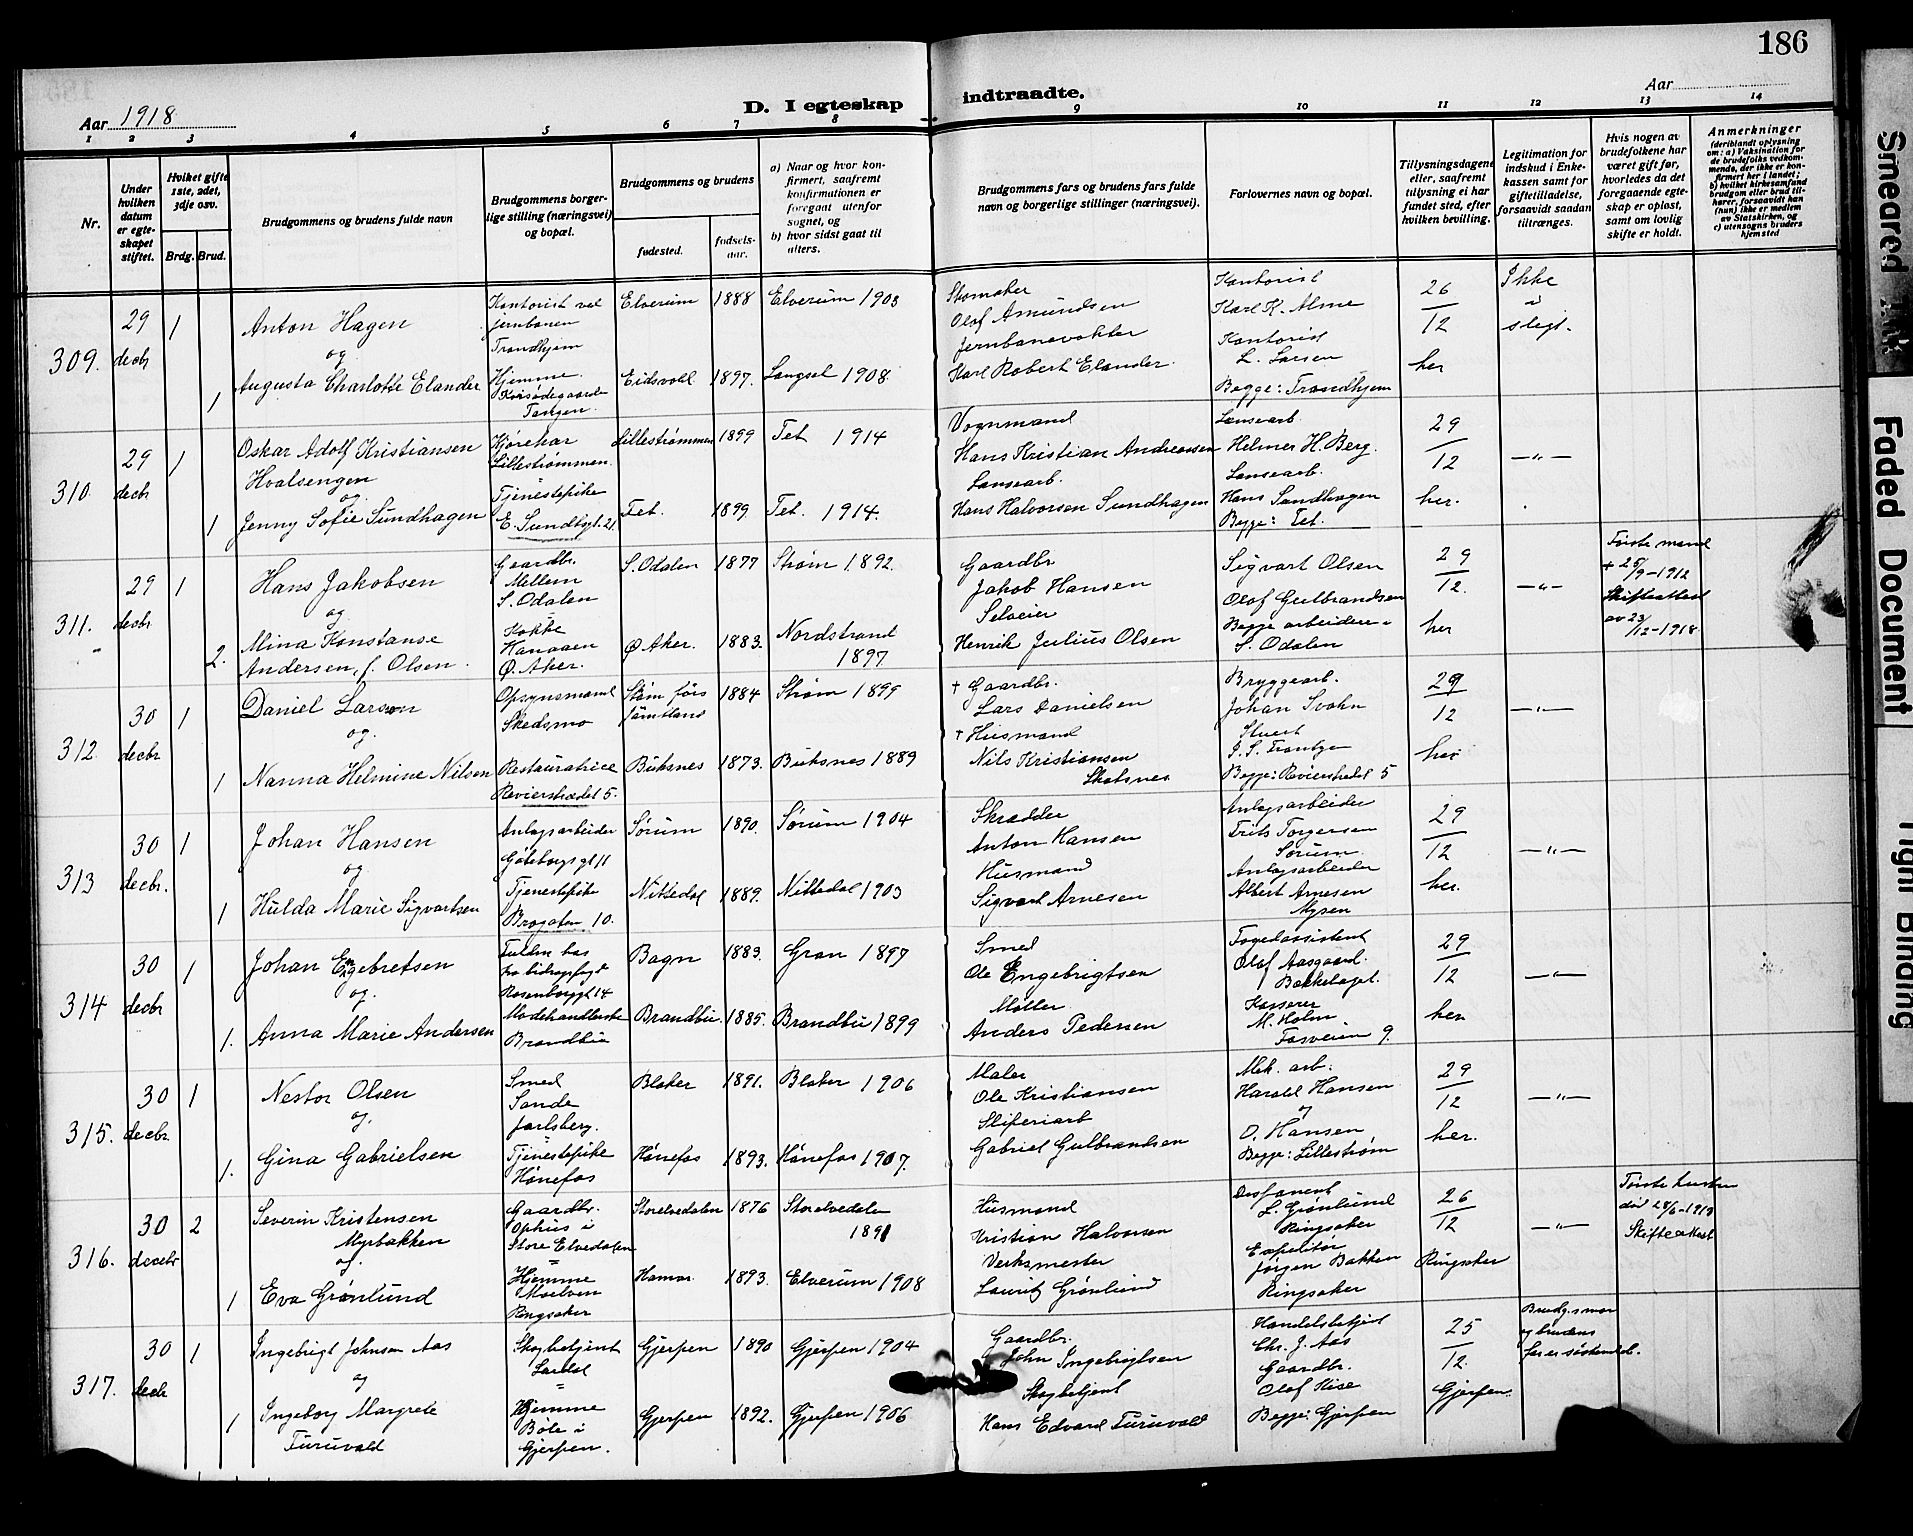 186
Aar 1918
D. I egteskap indtraadte.
Aar
1 2 3 4 5 6 7 8 9 10 11 12 13 14
Nr.
Under hvilken datum er egteskapet stiftet.
Hvilket gifte 1ste, 2det, 3dje osv.
Brdg. Brud.
Brudgommens og brudens fulde navn
Brudgommens borgerlige stilling (næringsvei) og bopæl.
Brudgommens og brudens
fødested.
fødselsaar.
a) Naar og hvor konfirmert, saafremt konfirmationen er foregaat utenfor sognet, og
b) hvor sidst gaat til alters.
Brudgommens fars og brudens fars fulde navn og borgerlige stillinger (næringsvei).
Forlovernes navn og bopæl.
Tillysningsdagene eller, saafremt tillysning ei har fundet sted, efter hvilken bevilling.
Legitimation for indskud i Enkekassen samt for giftetilladelse, forsaavidt saadan tiltrænges.
Hvis nogen av brudefolkene har været gift før, hvorledes da det foregaaende egteskap er opløst, samt om lovlig skifte er holdt.
Anmerkninger (deriblandt oplysning om: a) Vaksination for de brudefolks vedkommende, der ikke er konfirmert her i landet; b) hvilket kirkesamfund brudgom eller brud tilhører, forsaavidt han (hun) ikke er medlem av Statskirken, og c) utensogns bruders hjemsted
309. 29 decbr 1 Anton Hagen
Kontorist ved jernbanen Trondhjem
Elverum 1888 Elverum 1903
Skomaker Olaf Amundsen
Kontorist Karl K. Alme
Kontorist L. Larsen
Begge: Trondhjem
26/12 her
Ikke slegt.
og
1 Augusta Charlotte Elander
Hjemme Korsødegaarde Tangen.
Eidsvold 1897. Langset 1908.
Jernbanevokter Karl Robert Elander.
310. 29 decbr 1 Oskar Adolf Kristiansen Hvalsengen
Kjørekar Lillestrømmen.
Lillestrømmen 1899 Fet 1914
Vognmand Hans Kristian Andreassen
Lensearb. Helmer H. Berg.
Lensearb. Hans Sundhagen
Begge: Fet.
29/12 her.
—"—
og
1 Jenny Sofie Sundhagen
Tjenestepike E. Sundtsgt. 21
Fet. 1899 Fet. 1914.
Lensearb. Hans Halvorsen Sundhagen
311. 29 decbr 1 Hans Jakobsen
Gaardbr. Mellem S. Odalen
S. Odalen 1877 Strøm 1892.
Gaardbr. Jakob Hansen
Sigvart Olsen
Olaf Gulbrandsen
Begge arbeidere S. Odalen
29/12. her
—"—
Første mand + 25/9-1912
Skifteattest av 23/12-1918.
og
2. Mina Konstanse Andersen, f. Olsen.
Kokke Kanaaen Ø. Aker.
Ø. Aker. 1883. Nordstrand 1897
Selveier Henrik Julius Olsen
312. 30 decbr 1 Daniel Larsen
Opsynsmand Skedsmo
1884 Strøm 1899
† Gaardbr. Lars Danielsen
Bryggearb. Johan Svahn
Stuert
Begge: Revierstrædet 5
29/12 her
—"—
og.
1 Nanna Helmine Nilsen
Restauratrice Revierstrædet 5.
Buksnes 1873. Buksnes 1889
† Husmand Nils Kristiansen Skotsnes
313 30 decbr. 1 Johan Hansen
Anlægsarbeider Göteborggt 11
Sørum 1890. Sørum 1904
Skrædder Anton Hansen
Anlægsarbeider Frits Torgersen Sørum.
Anlægsarbeider Albert Arnesen Mysen
29/12 her.
—"—
og
1 Hulda Marie Sigvartsen
Tjenestepike Brogaten 10.
Nittedal 1889. Nittedal 1903
Husmand Sigvart Arnesen
314 30 decbr 1 Johan Engebretsen
Rosenborggt 14
Bagn 1883. Gran 1897
Smed Ole Engebrigtsen
Fogedassistent Olaf Aasgaard. Bakkehaget.
Kasserer M. Holm Fasveien 9.
29/12 her
—"—
og.
1. Anna Marie Andersen
Modehandlerske Brandbu
Brandbu 1885. Brandbu 1899
Møller Anders Pedersen
315. 30 decbr. 1 Nestor Olsen
Smed Sande Jarlsberg.
Blaker 1891. Blaker 1906
Maler Ole Kristiansen
Mek. arb. Harald Hansen
og O. Hansen
Begge: Lillestrøm
29/12 her.
—"—
og.
1. Gina Gabrielsen
Tjenestepike Hønefos
Hønefos 1893. Hønefos 1907.
Sliperiarb Gabriel Gulbrandsen
316. 30 decbr 2 Severin Kristensen Myrbakken
Gaardbr. Ophus i Store Elvedalen
Storelvedalen 1876 Storelvedalen 1891
Husmand Kristian Halvorsen
Disponent L. Grønlund Ringsaker
Expeditør Jørgen Bakken Ringsaker
26/12 Ringsaker
—"—
Første hustru død 28/6-1918
Skifteattest
og.
1 Eva Grønlund
Hjemme Moelven Ringsaker
Hamar. 1893. Elverum 1908
Verksmester Lauritz Grønlund
317. 30 decbr 1 Ingebrigt Johnsen Aas
Skogbetjent Lardal
Gjerpen 1890 Gjerpen 1904
Gaardbr. John Ingebrigtsen
Handelsbetjent Chr. J. Aas
Gaardbr. Olaf Hise
Begge: Gjerpen
25/12. Gjerpen.
Brudg.s mor og brudens far er søskende.
og
1 Ingeborg Margrete Furuvald
Hjemme Bøle i Gjerpen.
Gjerpen 1892. Gjerpen 1906
Skogbetjent Hans Edvard Furuvald
Smeared Ink
Faded Document
Tight Binding